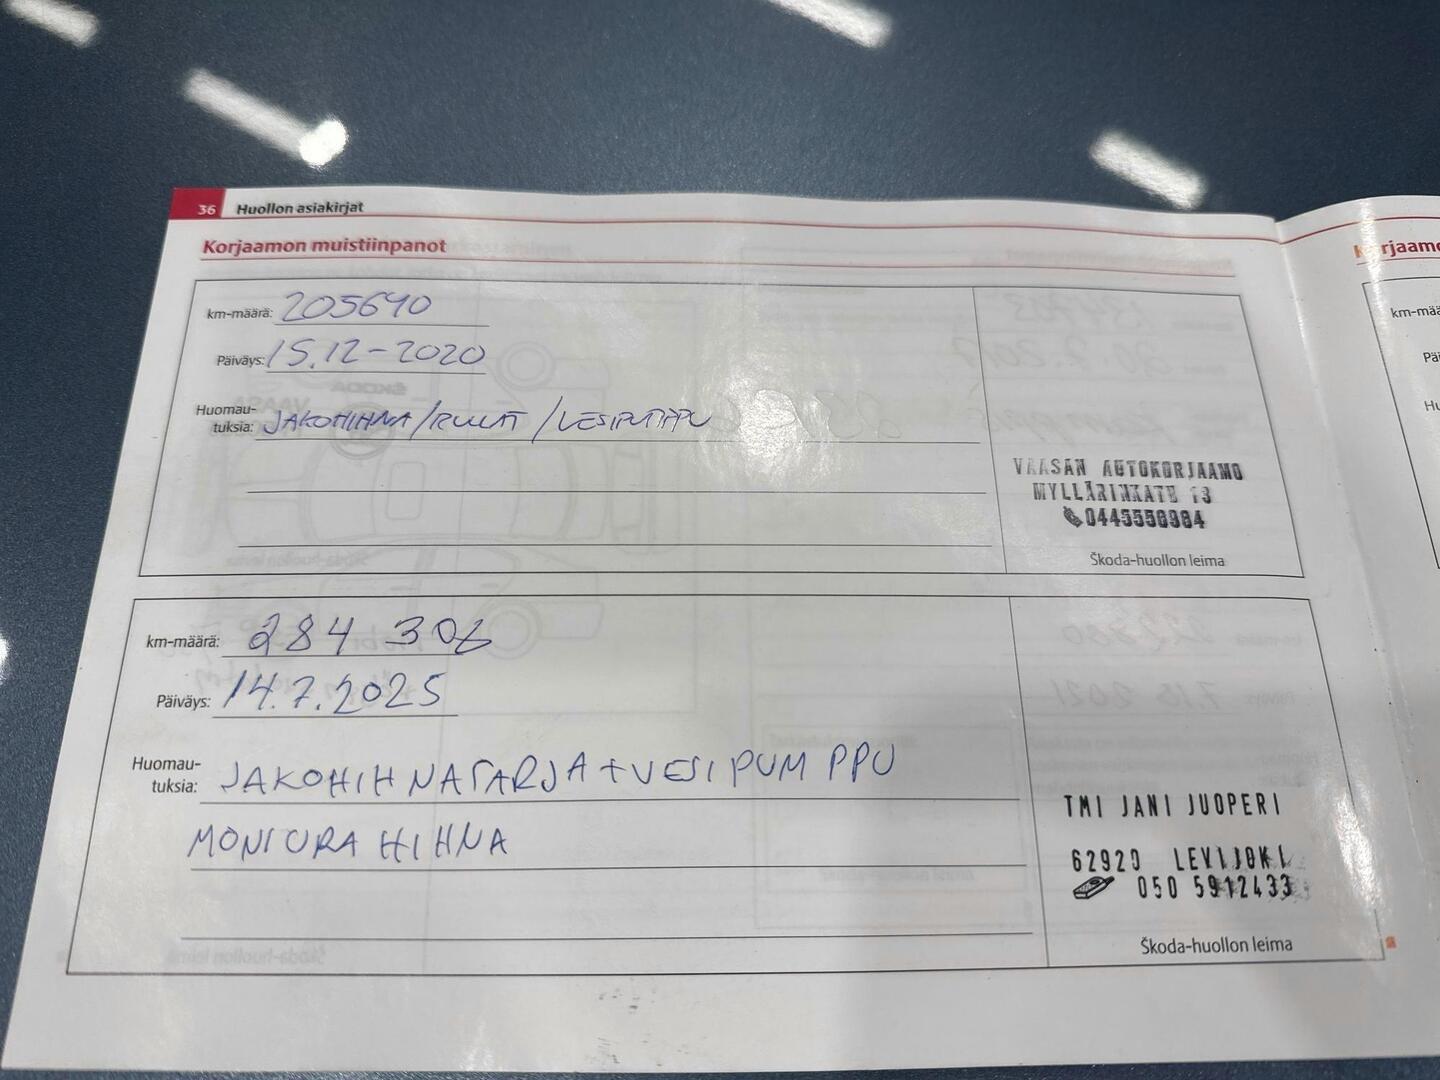 36 Huollon asiakirjat
Korjaamon muistiinpanot
km-määrä: 205640
Päiväys: 15.12-2020
Huomau-
tuksia: JAKOHIHNA/RULLAT/VESIPUMPPU
VAASAN AUTOKORJAAMO
MYLLÄRINKATU 13
0445556984
Škoda-huollon leima
km-määrä: 284 306
Päiväys: 14.7.2025
Huomau-
tuksia: JAKOHIHNASARJA+VESIPUMPPU
MONIURAHIHNA
TMI JANI JUOPERI
62920 LEVIJOKI
050 5912433
Škoda-huollon leima